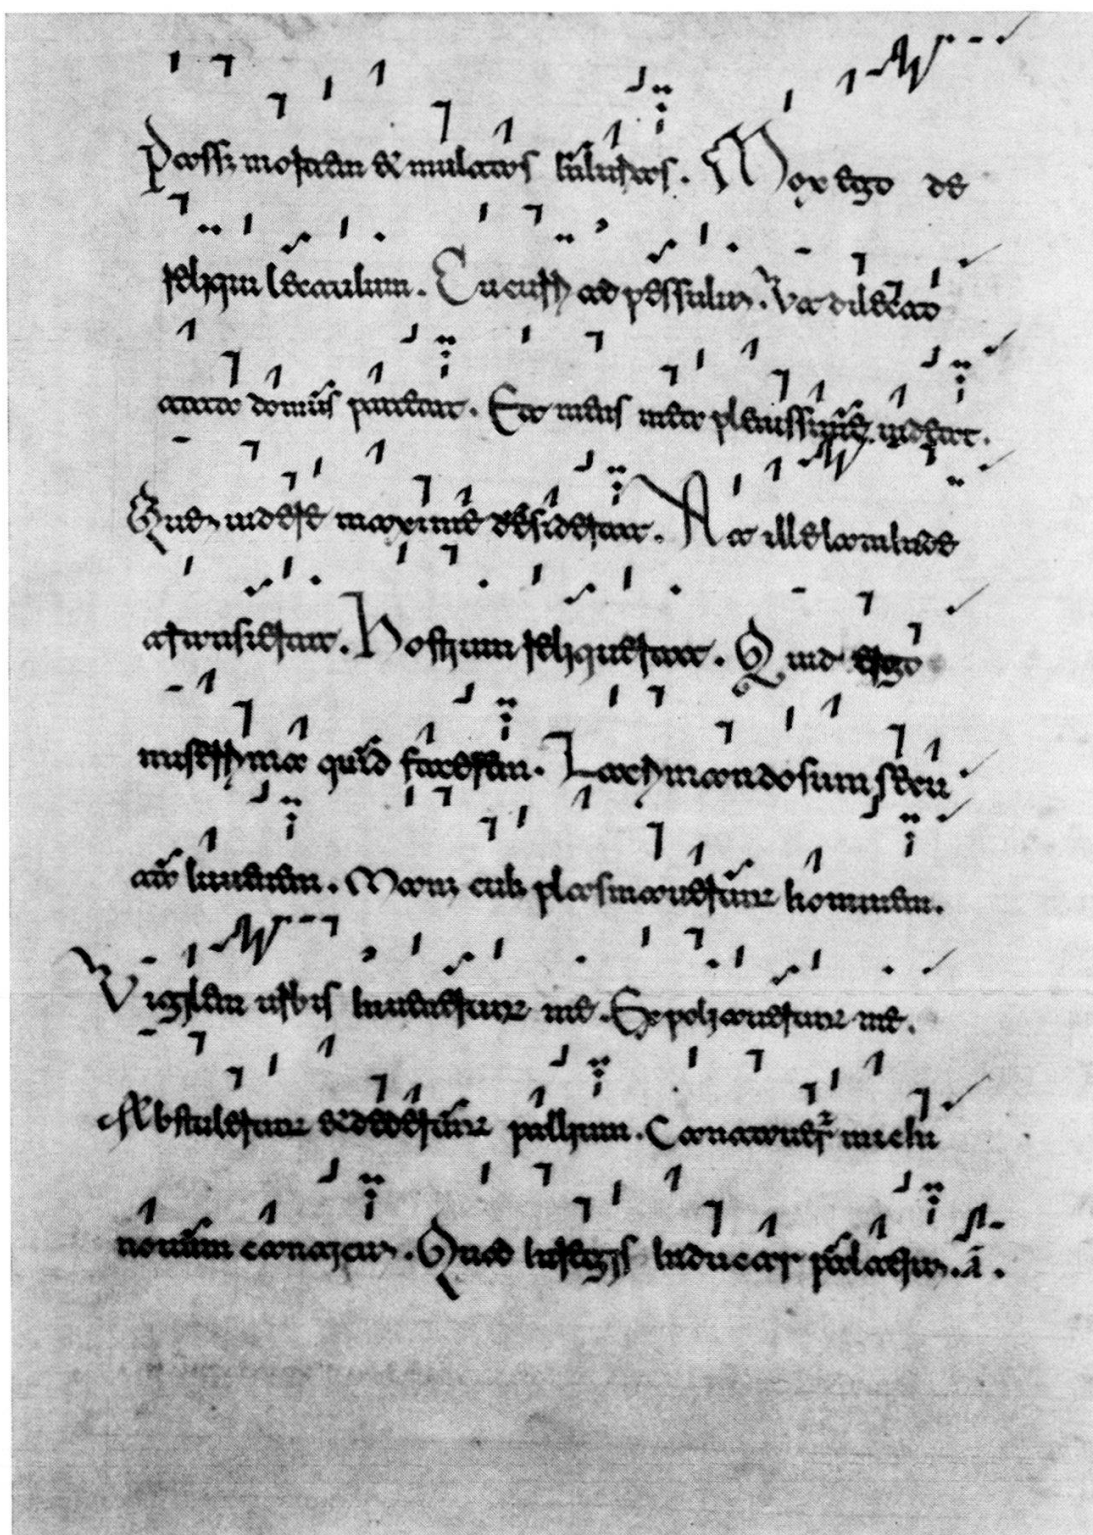 mortem & Mox ego de
reliqui lectulum. Cucurri ad pessulum. Ut dilecto
tota domus pateat. Et mens mea plenissime uideat.
Quem uidere maxime desiderat. At ille iam inde
transierat. Hostium reliquerat. Quid ergo
miserrima quid facerem. Lacrimando sum secu
ta iuuenem. plasmauerunt hominem.
Vigiles urbis inuenerunt me. Expoliauerunt me.
Abstulerunt et dederunt pallium. Cantauer̄ michi
nouum canticum. Quod inducar palatium. a.